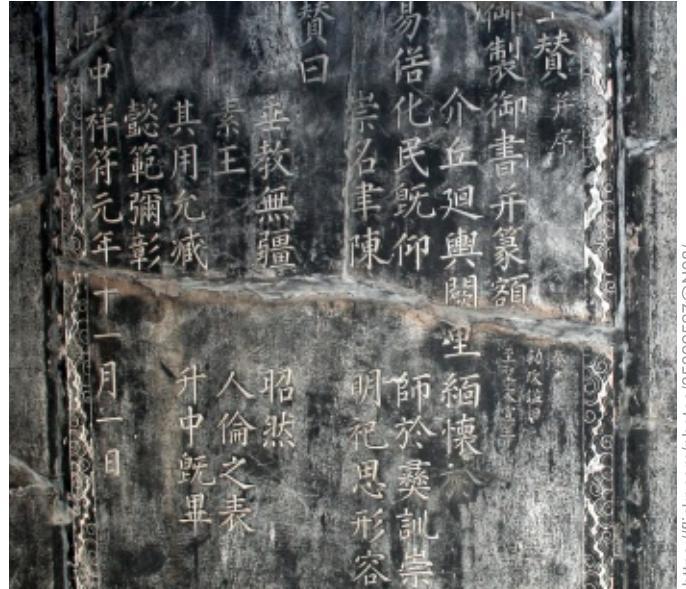 贊并序
御製御書并篆額
勅改謚曰
至聖文宣王
介丘廻輿闕里緬懷於
易俗化民旣仰師於彝訓崇
崇名聿陳明祀思形容
贊曰
垂教無疆昭然
素王人倫之表
其用允臧升中旣畢
懿範彌彰
大中祥符元年十一月一日